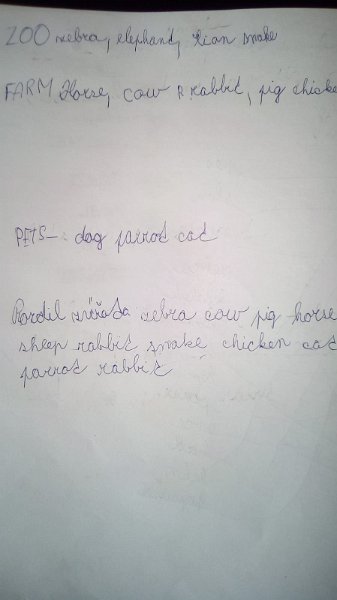 ZOO zebra, elephant, lion snake
FARM Horse, cow R rabbit, pig chicke
PETS- dog parrot cat
zvířata zebra cow pig horse
sheep rabbit snake chicken cat
parrot rabbit